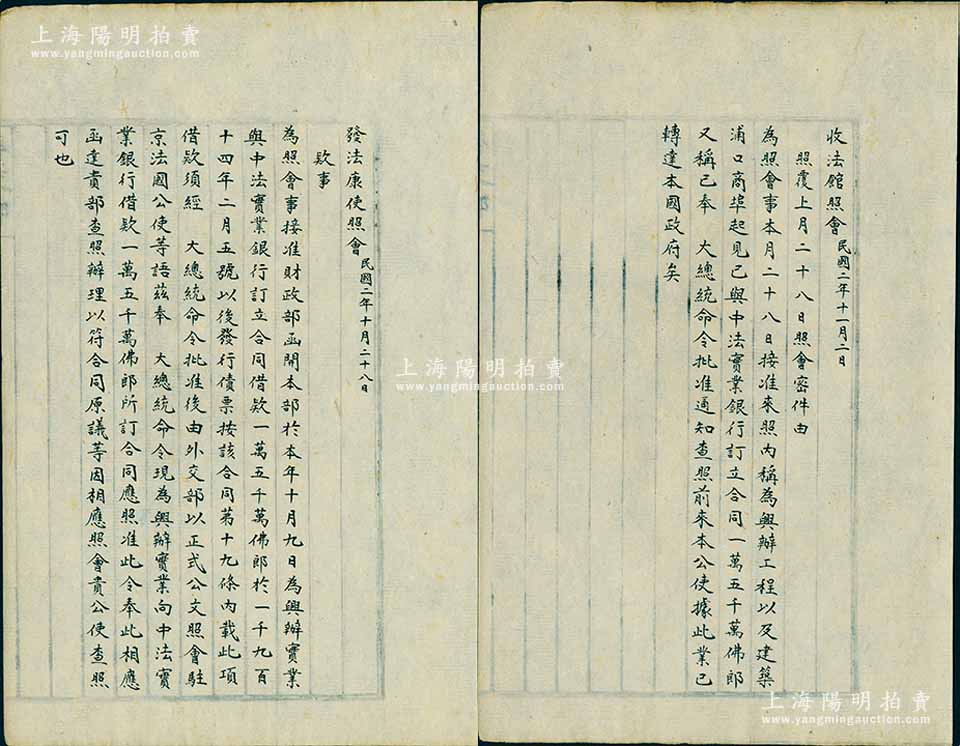 收法館照會民國二年十一月二日
照覆上月二十八日照會密件由
為照會事本月二十八日接准來照內稱為興辦工程以及建築
浦口商埠起見已與中法實業銀行訂立合同一萬五千萬佛郎
又稱已奉　大總統命令批准通知查照前來本公使據此業已
轉達本國政府矣
發法康使照會民國二年十月二十八日
欵事
為照會事接准財政部函開本部於本年十月九日為興辦實業
與中法實業銀行訂立合同借欵一萬五千萬佛郎於一千九百
十四年二月五號以後發行債票按該合同第十九條內載此項
借欵須經　大總統命令批准後由外交部以正式公文照會駐
京法國公使等語茲奉　大總統命令現為興辦實業向中法實
業銀行借欵一萬五千萬佛郎所訂合同應照准此令奉此相應
函達貴部查照辦理以符合同原議等因相應照會貴公使查照
可也
上海陽明拍賣
www.yangmingauction.com
上海陽明拍賣
www.yangmingauction.com
上海陽明拍賣
www.yangmingauction.com